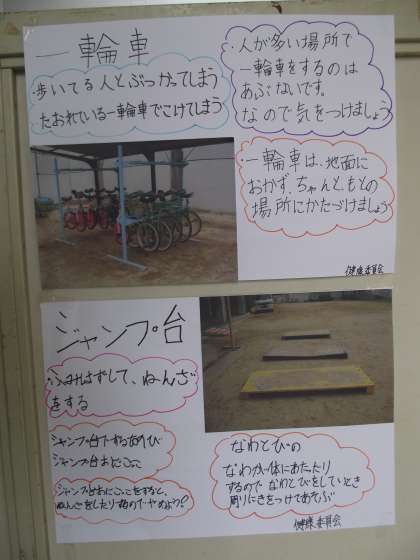 一輪車
歩いてる人とぶつかってしまう
たおれている一輪車でこけてしまう
・人が多い場所で
一輪車をするのは
あぶないです。
なので気をつけましょう
・一輪車は、地面に
おかず、ちゃんと、もとの
場所にかたづけましょう
健康委員会
ジャンプ台
・ふみはずして、ねんざ
をする
ジャンプ台でするあそび
ジャンプ台おにごっこ
ジャンプ台おにごっこをすると、
ねんざをしたり するのでやめよう!
なわとびの
なわが体にあたたり
するので なわとびをしているとき
周りにきをつけてあそぶ
健康委員会